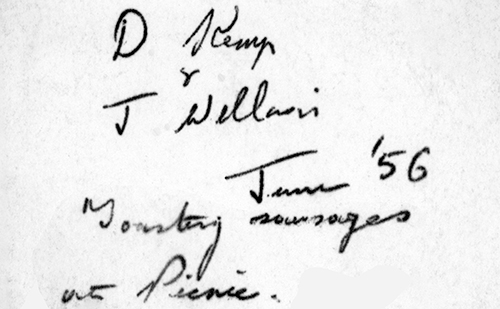 D Kemp
&
J
June '56
Toasting sausages
at Picnic.